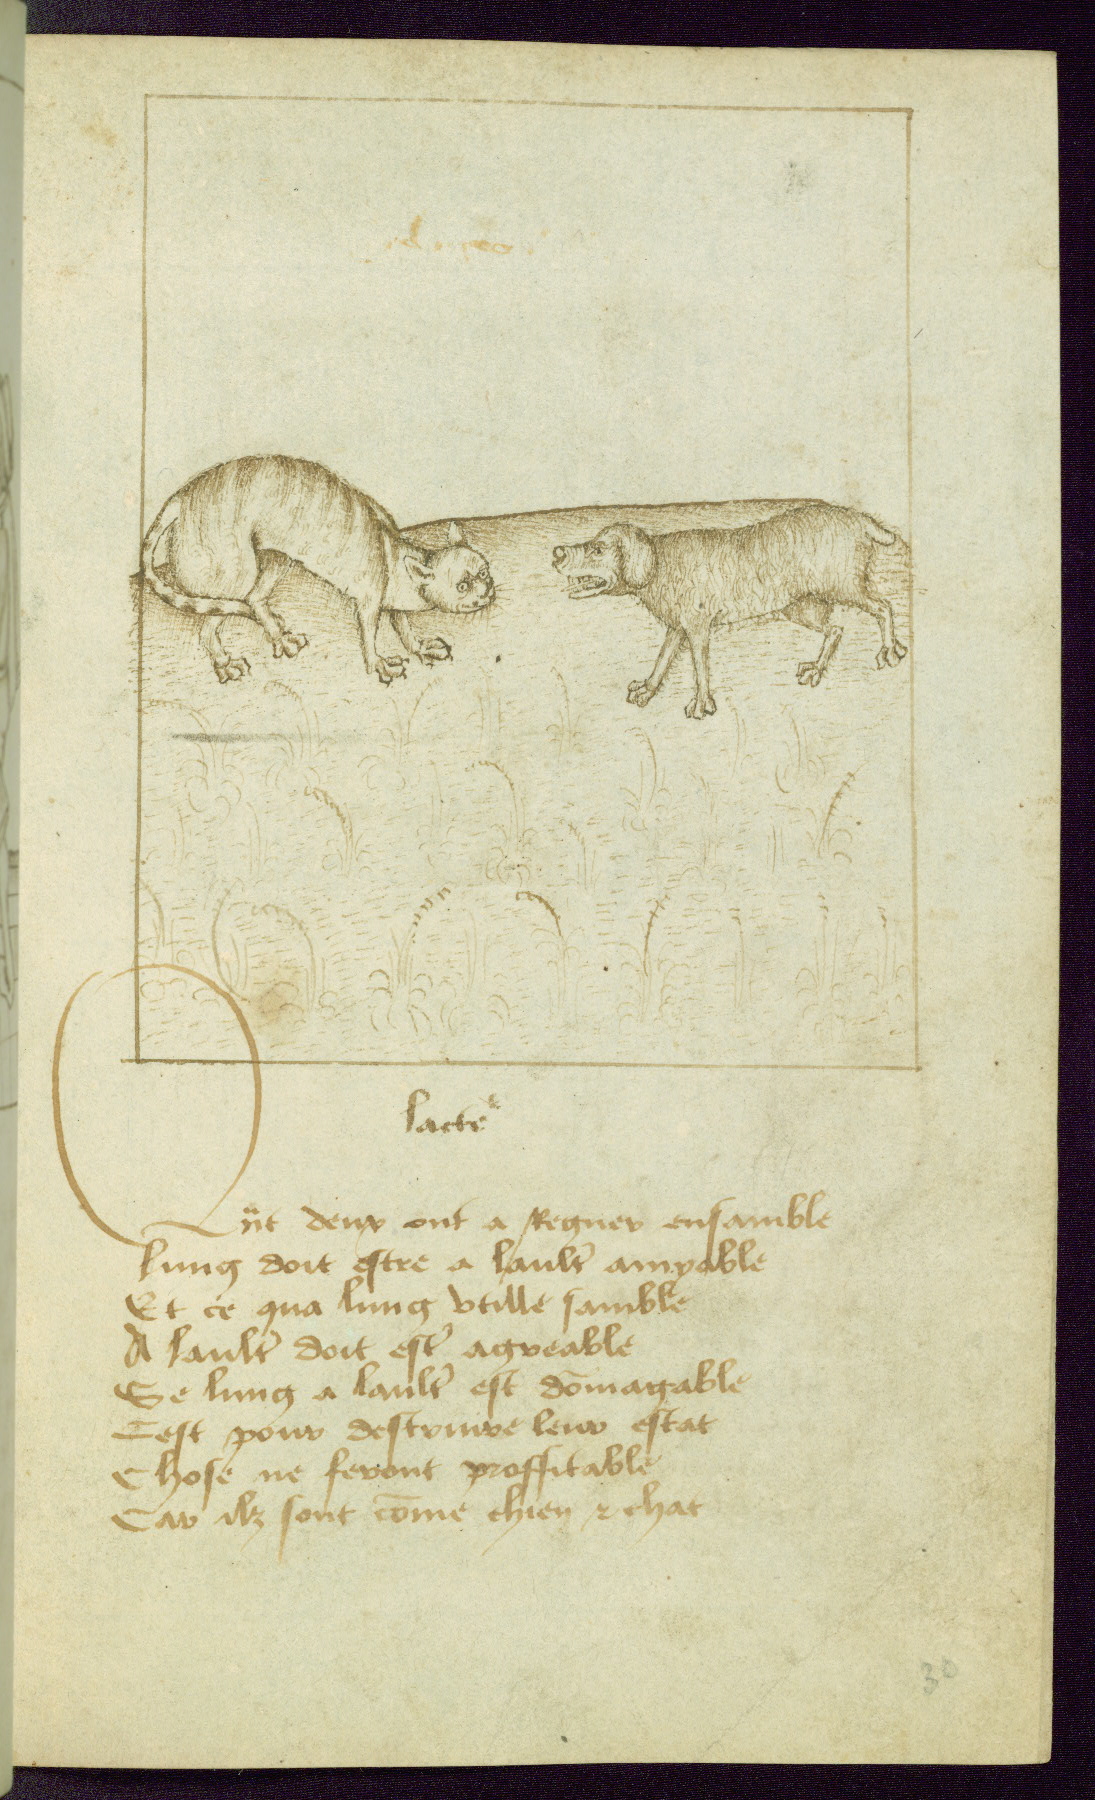 lacteᵉ̄
Qũt deux ont a Regner ensamble
Lung doit estre a laultr̃ amyable
Et ce qua lung vtille samble
A laultr̃ doit estr̃ agreable
Se lung a laultr̃ est dōmagable
Cest pour destruire leur estat
Chose ne feront proffitable
Car ilz sont cōme chien & chat
30